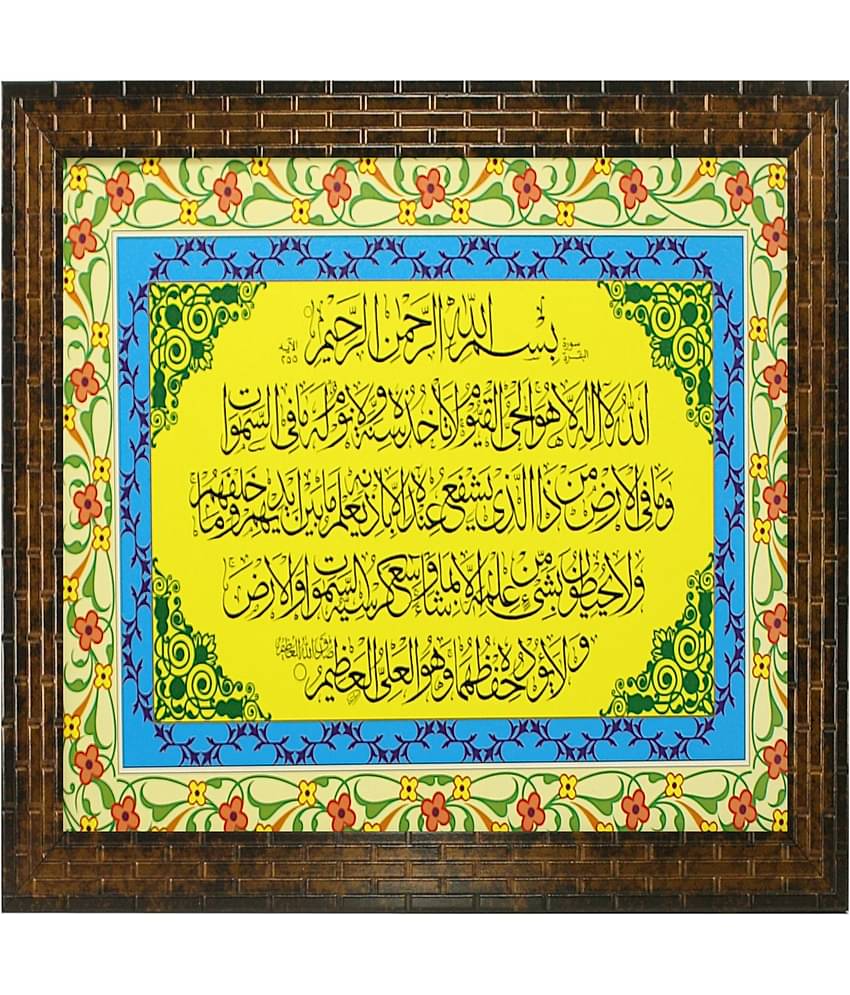 سورة البقرة بسم الله الرحمن الرحيم الآية ٢٥٥
الله لا إله إلا هو الحي القيوم لا تأخذه سنة ولا نوم له ما في السموات
وما في الأرض من ذا الذي يشفع عنده إلا بإذنه يعلم ما بين أيديهم وما خلفهم
ولا يحيطون بشيء من علمه إلا بما شاء وسع كرسيه السموات والأرض
ولا يؤده حفظهما وهو العلي العظيم صدق الله العظيم